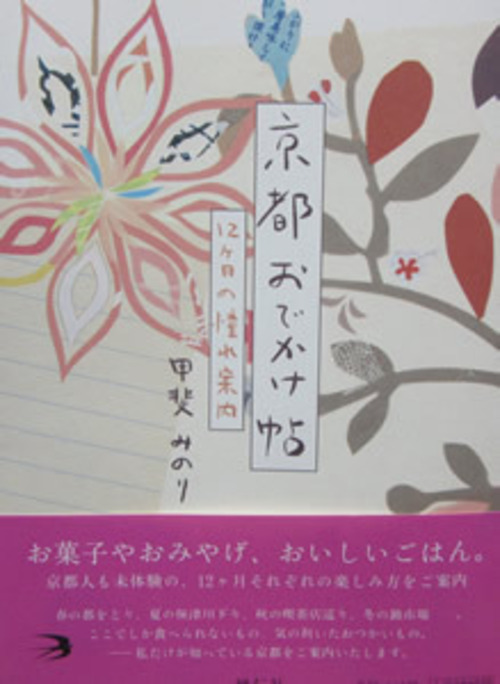 京都おでかけ帖
12ヶ月の憧れ案内
甲斐みのり
お菓子やおみやげ、おいしいごはん。
京都人も未体験の、12ヶ月それぞれの楽しみ方をご案内
春の都をどり、夏の保津川下り、秋の喫茶店巡り、冬の
ここでしか食べられないもの、気の利いたおつかいもの。
——私だけが知っている京都をご案内いたします。